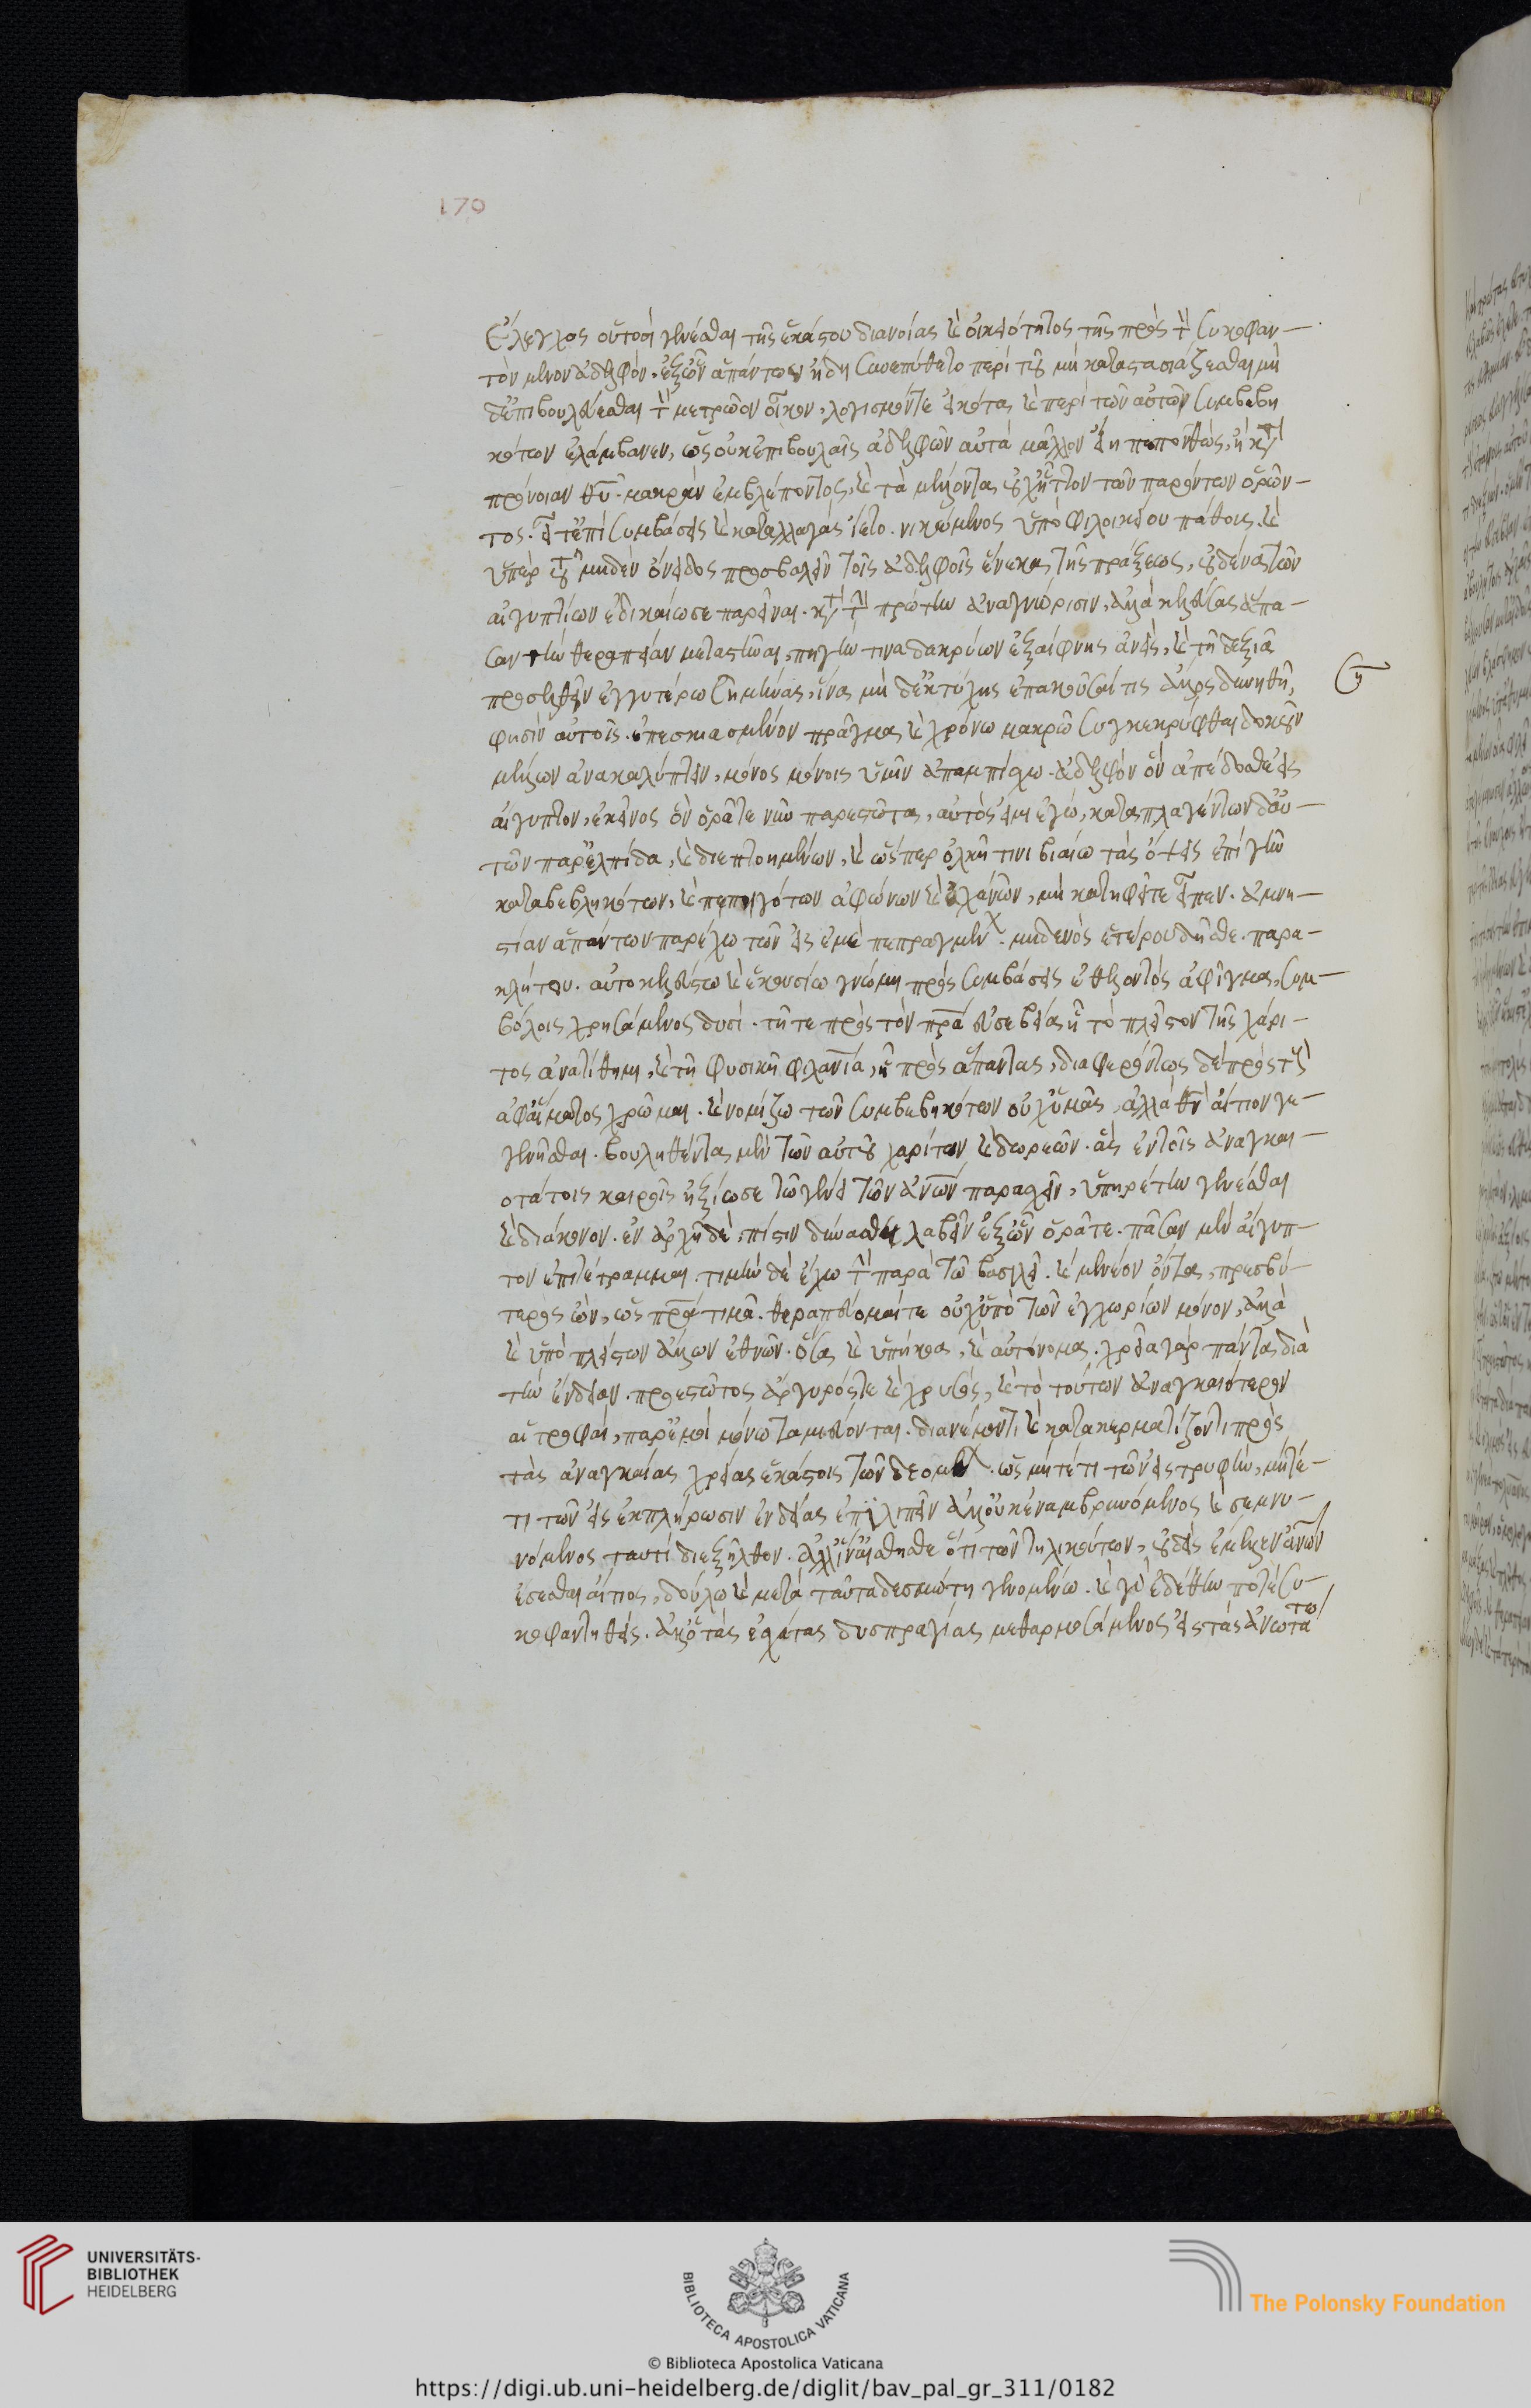 170
ἔλεγχος οὑτοσὶ γενέσθαι τῆς ἑκάστου διανοίας καὶ οἰκειότητος τῆς πρὸς τὸν συκοφαν-
τούμενον ἀδελφόν. ἐξ ὧν ἁπάντων ἤδη συνεπείθετο περὶ τοῦ μὴ καταστασιάζεσθαι μὴ
δ' ἐπιβουλεύεσθαι τὸν μητρῶον οἶκον, λογισμούς τε εἰκότας καὶ περὶ τῶν αὐτῶν συμβεβη
κότων ἐλάμβανεν, ὡς οὐκ ἐπιβουλαῖς ἀδελφῶν αὐτὰ μᾶλλον εἴη πεπονθὼς, ἢ κατὰ
πρόνοιαν θυ. μακρὰν ἐμβλέποντος, καὶ τὰ μέλλοντα οὐχ ἧττον τῶν παρόντων ὁρῶν-
τος. εἶτ' ἐπὶ συμβάσεις καὶ καταλλαγὰς ἵετο. νικώμενος ὑπὸ φιλοικείου πάθους. καὶ
ὑπὲρ τοῦ μηδὲν ὄνειδος προσβαλεῖν τοῖς ἀδελφοῖς ἕνεκα τῆς πράξεως, οὐδένα τῶν
αἰγυπτίων ἐδικαίωσε παρεῖναι. κατὰ τὴν πρώτην ἀναγνώρισιν, ἀλλὰ κελεύσας ἅπα-
σαν τὴν θεραπείαν μεταστῆναι, πηγήν τινα δακρύων ἐξαίφνης ἀνεὶς, καὶ τῇ δεξιᾷ
προσελθεῖν ἐγγυτέρω σημήνας, ἵνα μὴ δ' ἐκ τύχης ἐπακοῦσαί τις ἄλλος δυνηθῇ,
φησὶν αὐτοῖς. ἐπεσκιασμένον πρᾶγμα καὶ χρόνω μακρῶ συγκεκρύφθαι δοκοῦν
μέλλων ἀνακαλύπτειν, μόνος μόνοις ὑμῖν ἀπαμπίσχω. ἀδελφὸν ὃν ἀπέδοσθε εἰς
αἴγυπτον, ἐκεῖνος ὃν ὁρᾶτε νῦν παρεστῶτα, αὐτός εἰμι ἐγώ, καταπλαγέντων δ' αὐ-
τῶν παρ' ἐλπίδα, καὶ διεπτοημένων, καὶ ὥσπερ ὁλκῇ τινι βιαίω τὰς ὄψεις ἐπὶ γῆν
καταβεβληκότων, καὶ πεπηγότων ἀφώνων καὶ ἀχανῶν, μὴ κατηφεῖτε εἶπεν. ἀμνη-
στίαν ἁπάντων παρέχω τῶν εἰς ἐμὲ πεπραγμένων. μηδενὸς ἑτέρου δεῖσθε. παρα-
κλήτου. αὐτοκελεύστω καὶ ἑκουσίω γνώμη πρὸς συμβάσεις ἐθελοντὸς ἀφῖγμαι, συμ-
βούλοις χρησάμενος δυσί. τῇ τε πρὸς τὸν πρα εὐσεβεία ᾗ τὸ πλεῖστον τῆς χάρι-
τος ἀνατίθημι, καὶ τῇ φυσικῇ φιλανία, ᾗ πρὸς ἅπαντας, διαφερόντως δὲ πρὸς τοὺς
ἀφ' αἵματος χρῶμαι. καὶ νομίζω τῶν συμβεβηκότων οὐχ ὑμᾶς, ἀλλὰ θν αἴτιον γε-
γενῆσθαι. βουληθέντα μὲν τῶν αὐτοῦ χαρίτων καὶ δωρεῶν. ἃς ἐν τοῖς ἀναγκαι-
οτάτοις καιροῖς ἠξίωσε τῶ γένει τῶν ανων παρασχεῖν, ὑπηρέτην γενέσθαι
καὶ διάκονον. ἐν ἀρχῇ δὲ, πίστιν δύνασθε λαβεῖν ἐξ ὧν ὁρᾶτε. πᾶσαν μὲν αἴγυπ-
τον ἐπιτέτραμμαι. τιμὴν δὲ ἔχω τὴν παρὰ τῶ βασιλεῖ. καὶ με νέον ὄντα, πρεσβύ-
τερος ὢν, ὡς πρα τιμᾶ. θεραπεύομαί τε οὐχ ὑπὸ τῶν ἐγχωρίων μόνον, ἀλλὰ
καὶ ὑπὸ πλείστων ἄλλων ἐθνῶν. ὅσα καὶ ὑπήκοα, καὶ αὐτόνομα. χρεῖα γὰρ πάντα διὰ
τὴν ἔνδειαν. προεστῶτος ἄργυρός τε καὶ χρυσὸς, καὶ τὸ τούτων ἀναγκαιότερον
αἱ τροφαὶ, παρ' ἐμοὶ μόνω ταμιεύονται. διανέμοντι καὶ κατακερματίζοντι πρὸς
τὰς ἀναγκαίας χρείας ἑκάστοις τῶν δεομένων. ὡς μήτέ τι τῶν εἰς τρυφὴν, μήτέ-
τι τῶν εἰς ἐκπλήρωσιν ἐνδείας ἐπιλιπεῖν ἀλλ' οὐκ ἐναμβρυνόμενος καὶ σεμνυ-
νόμενος ταυτὶ διεξῆλθον. ἀλλ' ἵν' αἴσθησθε ὅτι τῶν τηλικούτων, οὐδεὶς ἔμελλεν ανων
ἔσεσθαι αἴτιος, δούλω καὶ μετὰ ταῦτα δεσμώτη γενομένω. καὶ γὰρ ἐδέθην ποτὲ συ-
κοφαντηθείς. ἀλλ' ὁ τὰς ἐσχάτας δυσπραγίας μεθαρμοσάμενος εἰς τὰς ἀνωτά
τω
UNIVERSITÄTS-
BIBLIOTHEK
HEIDELBERG
BIBLIOTECA APOSTOLICA VATICANA
The Polonsky Foundation
© Biblioteca Apostolica Vaticana
https://digi.ub.uni-heidelberg.de/diglit/bav_pal_gr_311/0182